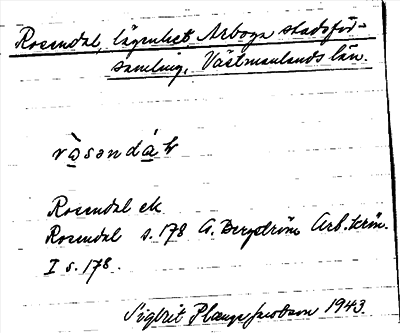 Rosendal, lägenhet Arboga stadsför-
samling, Västmanlands län.
ròsəndáɫ
Rosendal ek
Rosendal s. 178 G. Bergström Arb. krön.
I s. 178.
Sigbrit Plænge Jacobson 1943.